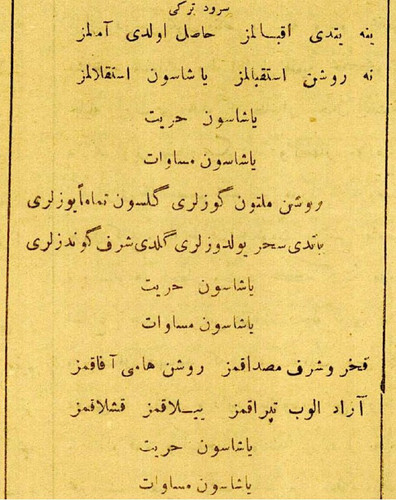 سرود ترکی
ینه یتدی اقبالمز حاصل اولدی آمالمز
نه روشن استقبالمز یاشاسون استقلالمز
یاشاسون حریت
یاشاسون مساوات
روشن ملتون گوزلری گلسون تماماً یوزلری
باتدی سحر یولدوزلری گلدی شرف گوندزلری
یاشاسون حریت
یاشاسون مساوات
فخر و شرف مصداقمز روشن هامی آفاقمز
آزاد الوب تپراقمز ییلاقمز قشلاقمز
یاشاسون حریت
یاشاسون مساوات